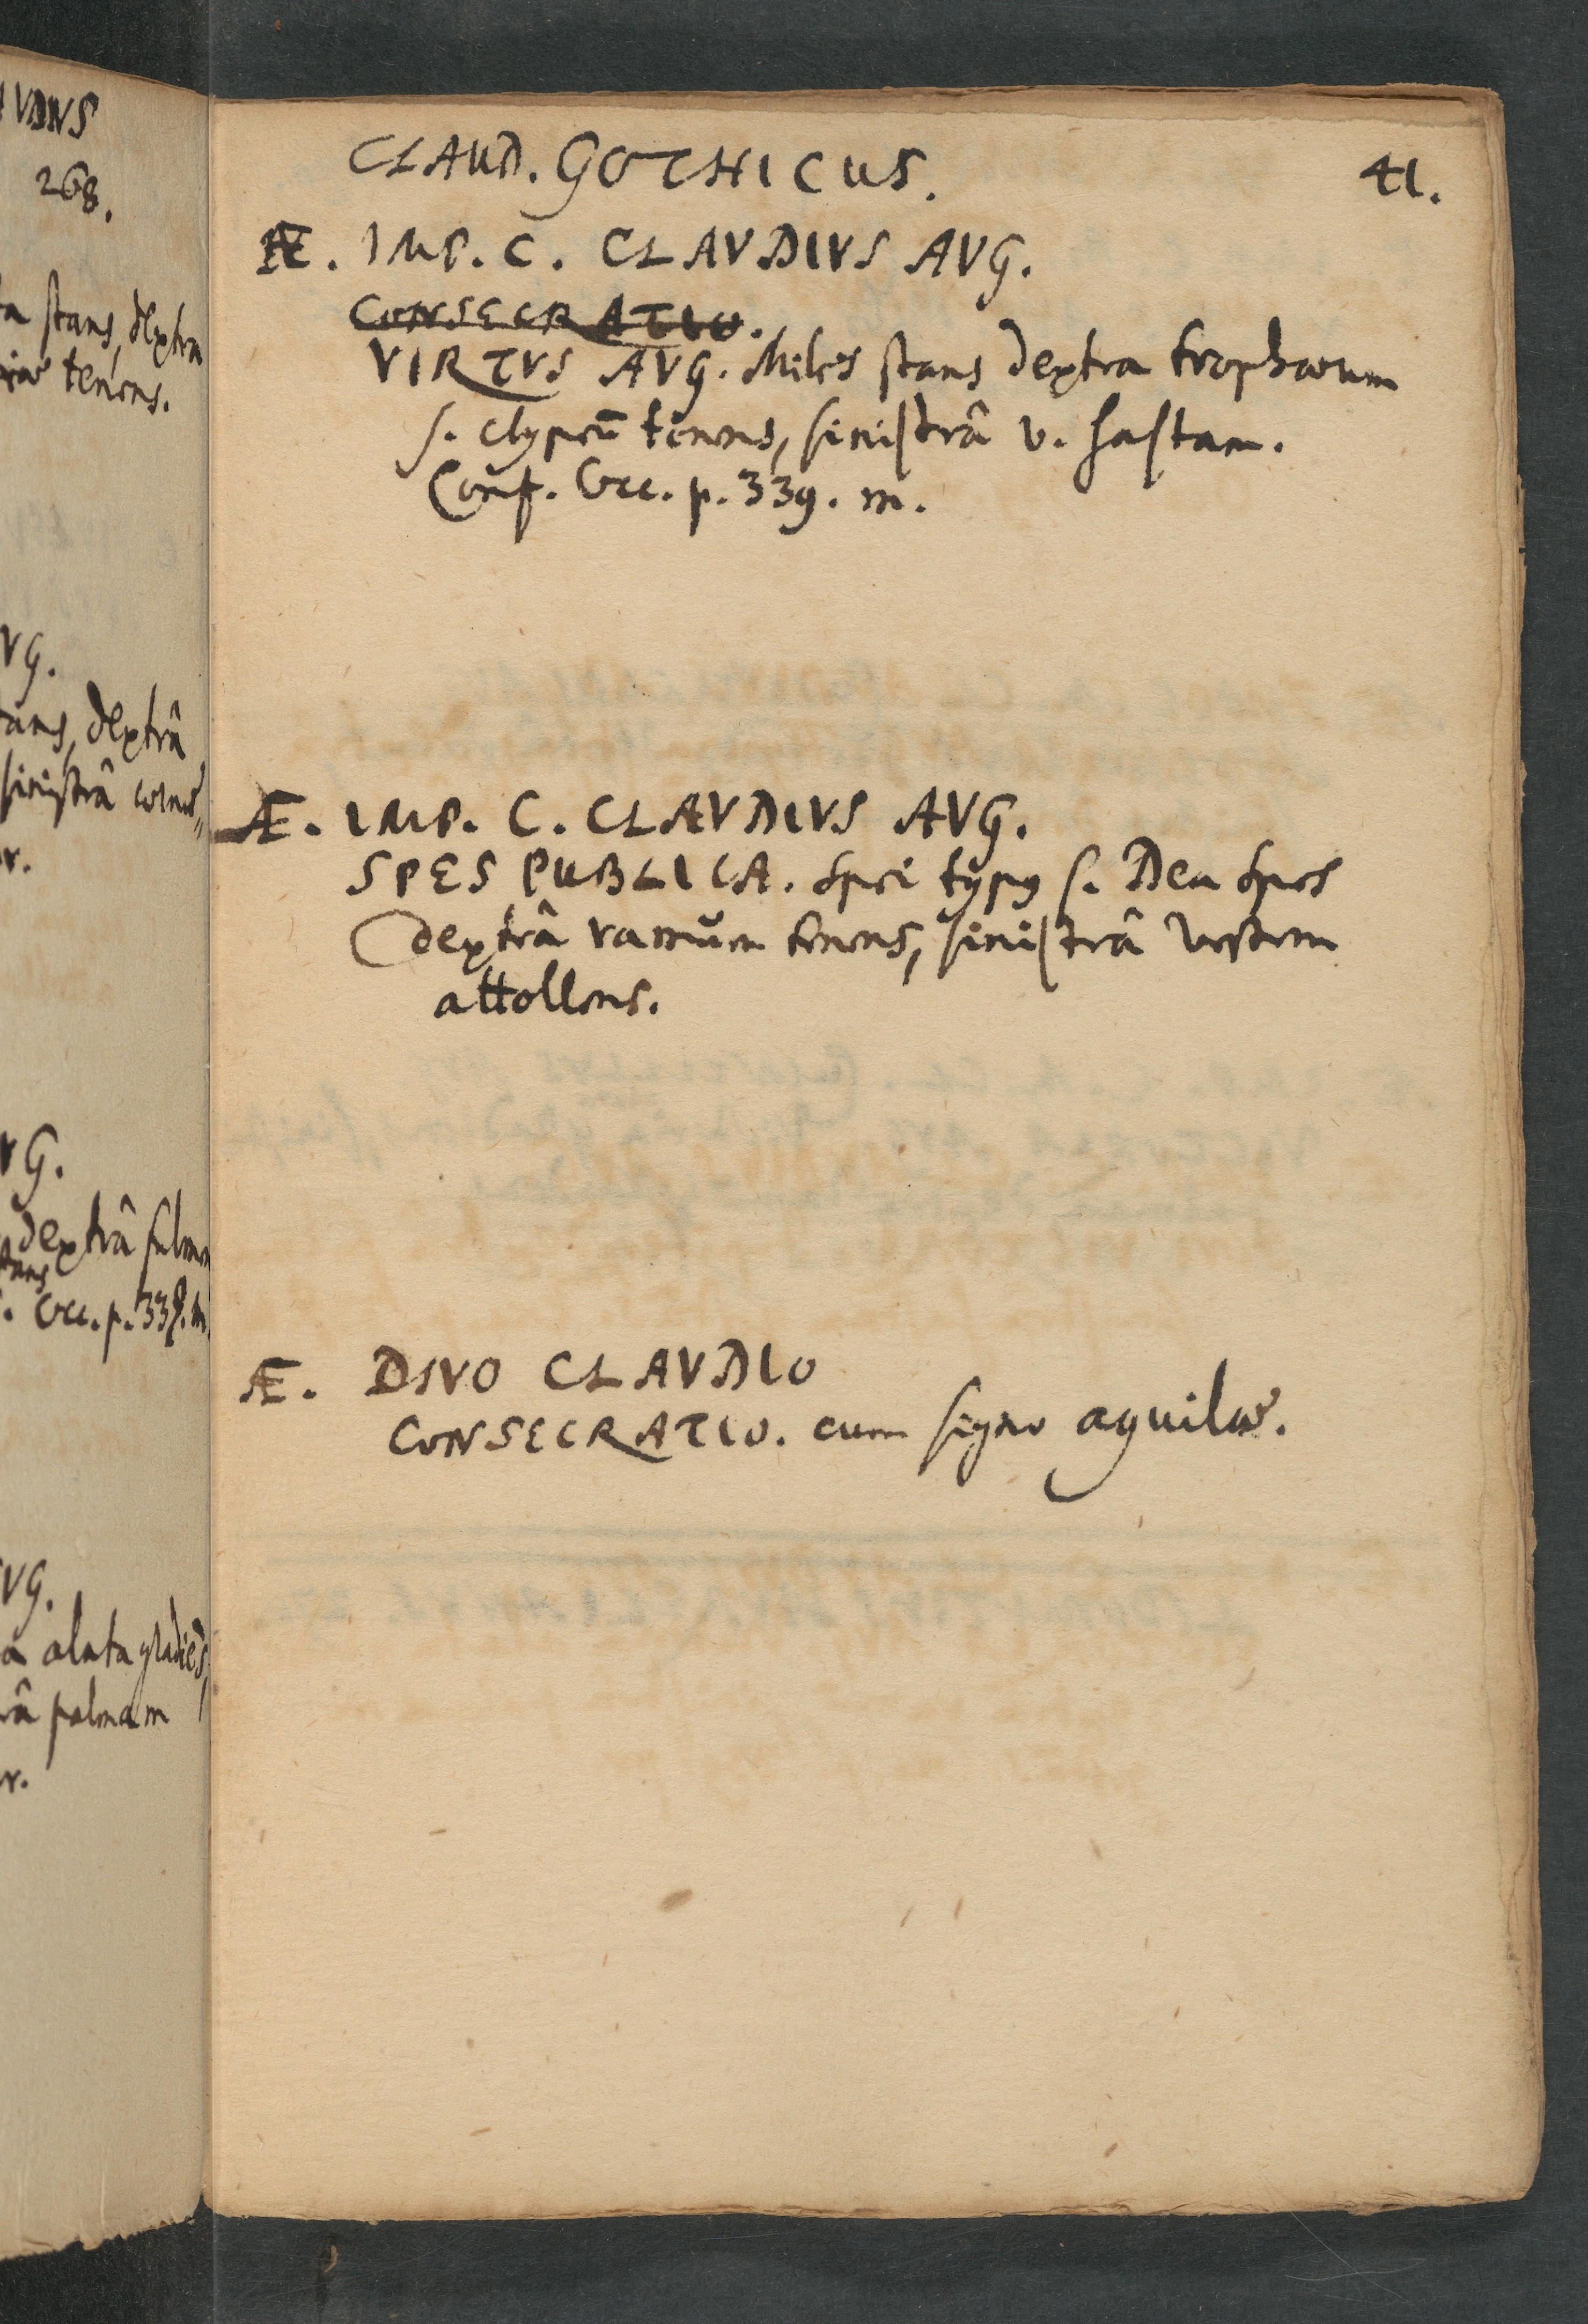 VDNS
268.
stans, dextra
tenens.
VG.
dextrâ
sinistrâ cornu
r.
VG.
dextrâ fulmen
stans
Occ. p. 338. m.
VG.
a alata gradieñs,
palmam
r.
CLAUD. GOTHICUS.
41.
Æ. IMP. C. CLAVDIVS AVG.
CONSECRATIO.
VIRTVS AVG. Miles stans dextra trophaeum
s. clypeū tenens, sinistrâ v. hastam.
Conf. Occ. p. 339. m.
Æ. IMP. C. CLAVDIVS AVG.
SPES PUBLICA. Spei typg s. Dea Spes
dextrâ ramum tenens, sinistrâ vestem
attollens.
Æ. DIVO CLAVDIO
CONSECRATIO. cum signo aquilae.